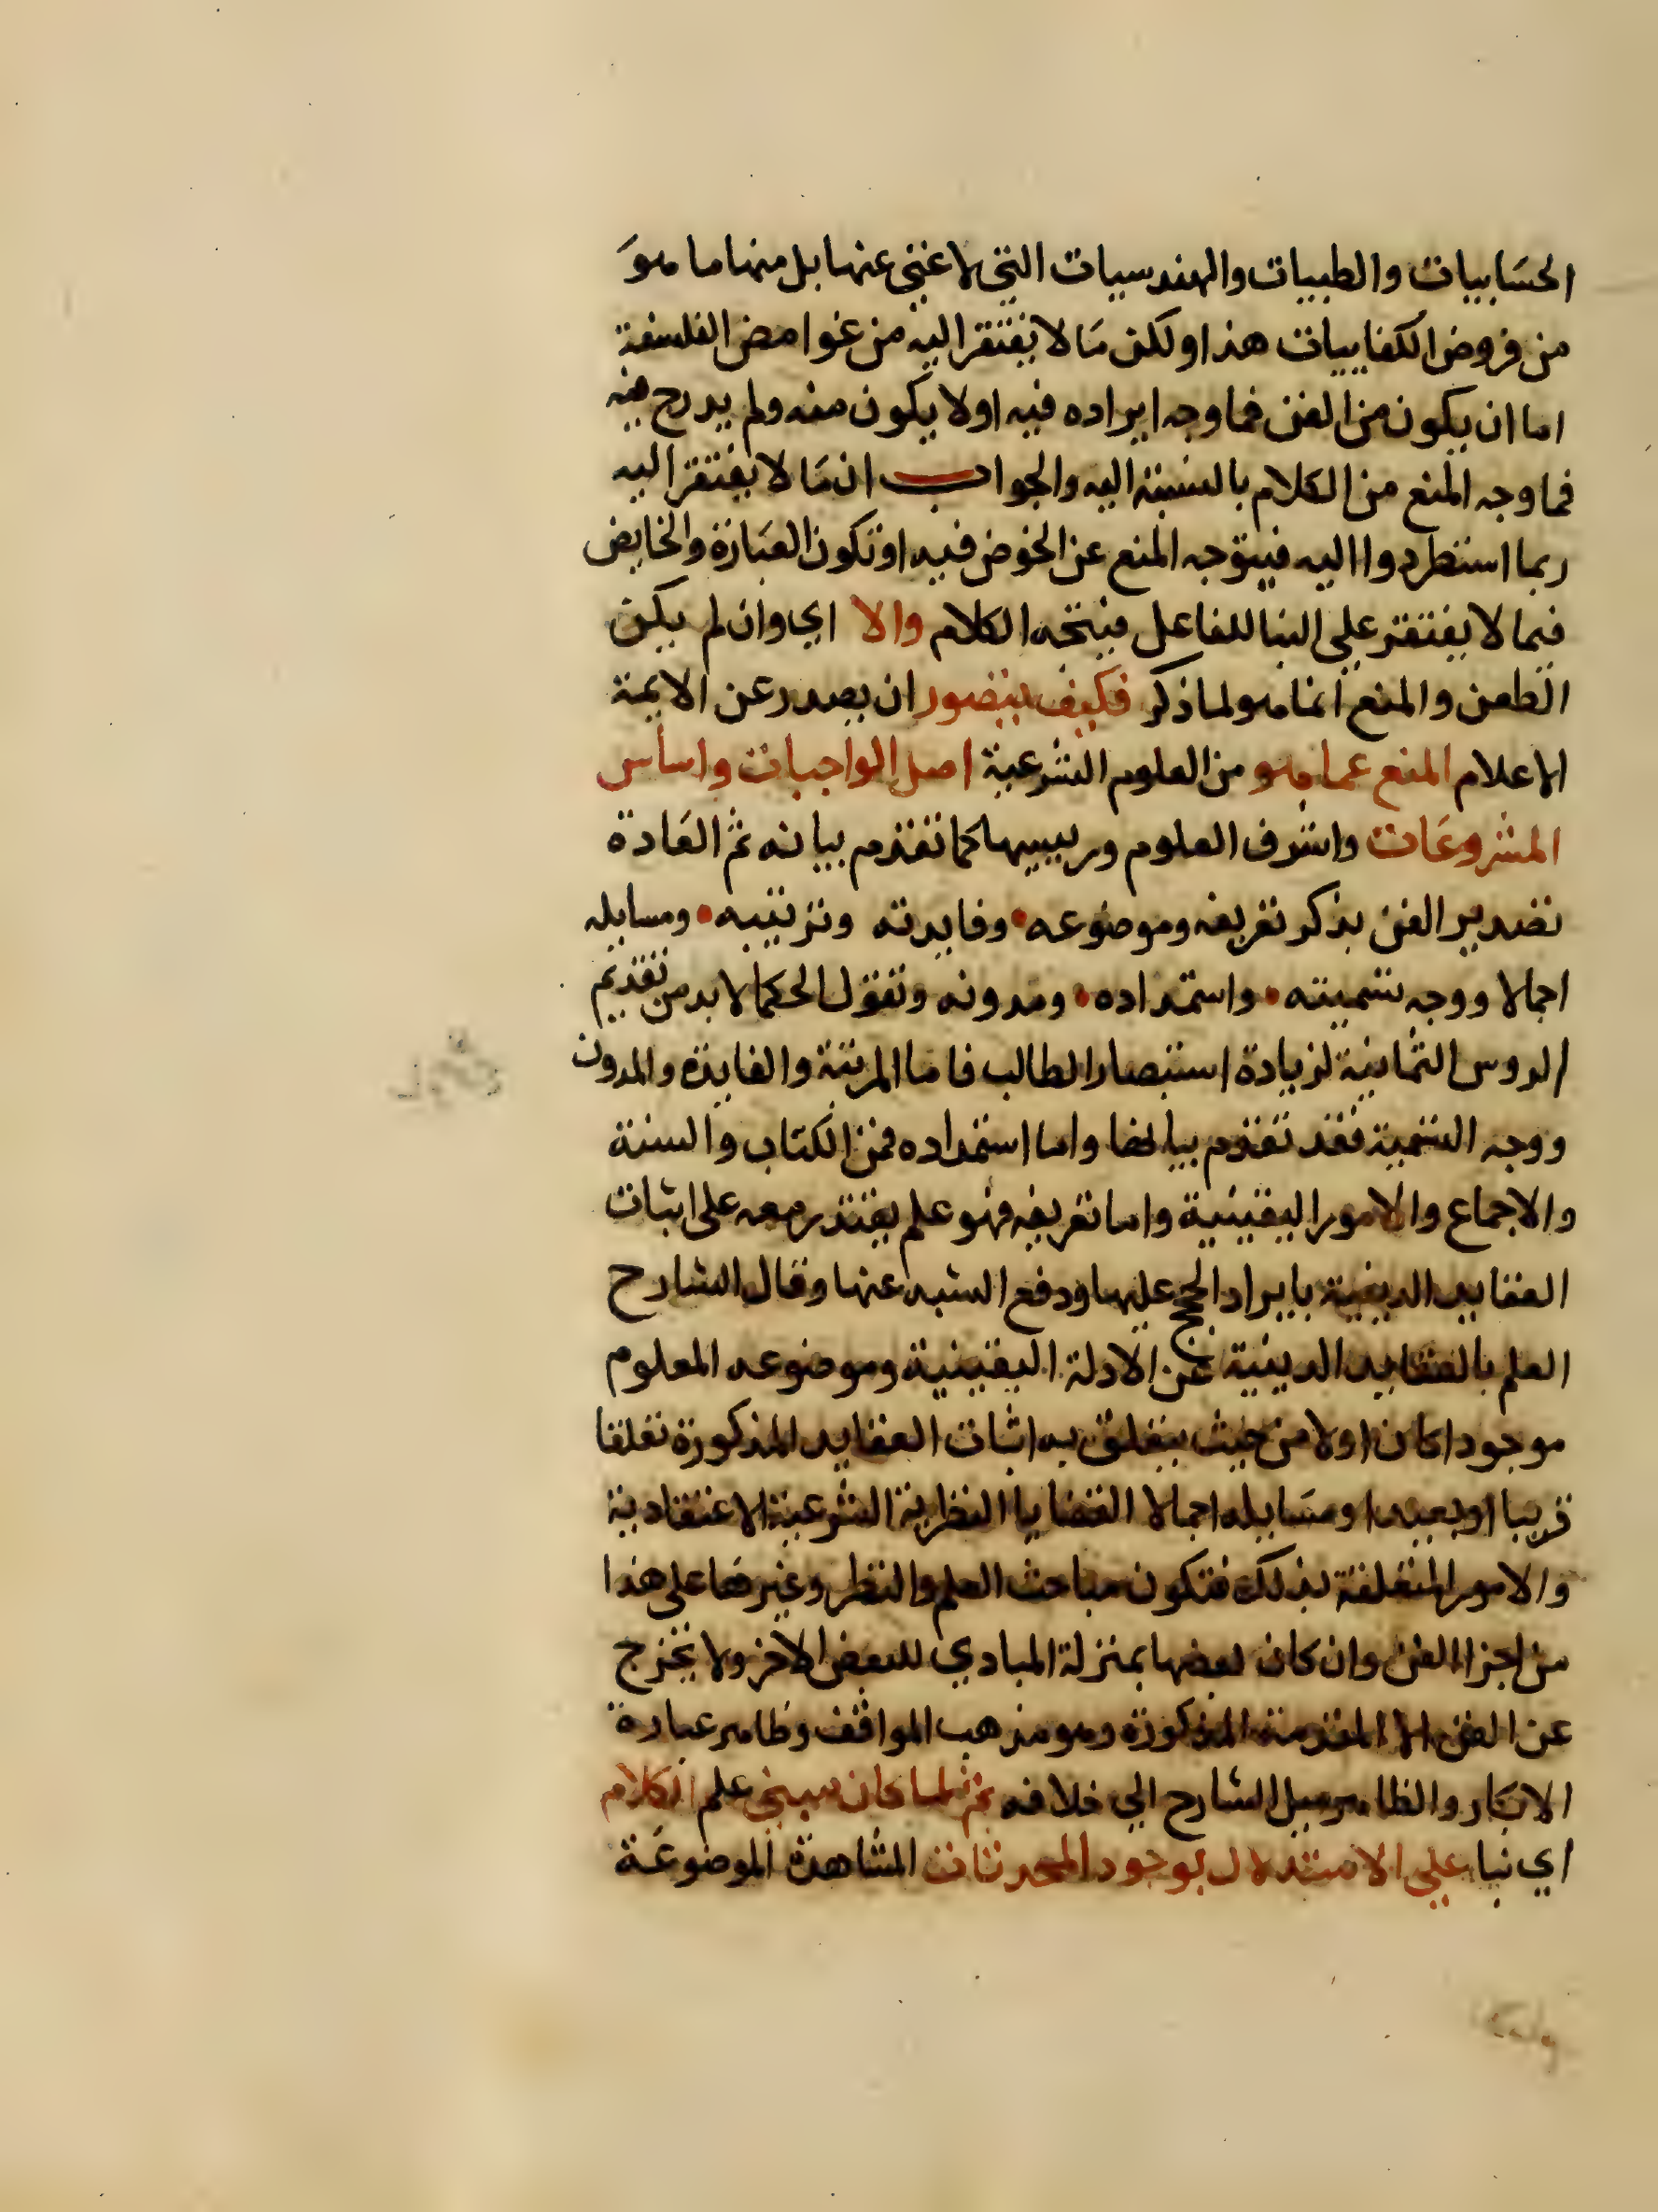 الحسَابيات والطبيات والهندسيات التي لا غني عنها بل منها ما هوَ
من فروض الكفاييات هذا ولكن مَا لا يفتقر اليه من غوامض الفلسفة
اما ان يكون من الفن فما وجه ايراده فيه او لا يكون منه ولم يدرج فيه
فما وجه المنع من الكلام بالنسبة اليه والجواب ان مَا لا يفتقر اليه
ربما استطردوا اليه فيتوجه المنع عن الخوض فيه او تكون العبَارة والخايض
فيما لا يفتقر علي البنا للفاعل فيتجه الكلام والا اي وان لم يكن
الطعن والمنع انما هو لما ذكر فكيف يتصور ان يصدر عن الايمة
الاعلام المنع عما هو من العلوم الشرعية اصل الواجبات واساس
المشروعَات واشرف العلوم ورييسها كما تقدم بيانه ثم العَادة
تصدير الفن بذكر تعريفه وموضوعه • وفايدته وترتيبه • ومسايله
اجمالا ووجه تسميته • واستمداده • ومدونه وتقول الحكما لا بد من تقديم
الروس الثمانية لزيادة استبصار الطالب فاما المرتبة والفايدة والمدون
ووجه التسمية فقد تقدم بيانها واما استمداده فمن الكتاب والسنة
والاجماع والامور اليقينية واما تعريفه فهو علم يقتدر معه على اثبات
العقايد الدينية بايراد الحجج عليها ودفع الشبه عنها وقال الشارح
العلم بالعقايد الدينية عن الادلة اليقينية وموضوعه المعلوم
موجودا كان اولا من حيث يتعلق به اثبات العقايد المذكورة تعلقا
قريبا او بعيدا ومسَايله اجمالا القضايا النظرية الشرعية الاعتقادية
والامور المتعلقة بذلك فتكون مباحث العلم والنظر وغيرهما على هذا
من اجزا الفن وان كان بعضها بمنزلة المبادي للبعض الاخر ولا تخرج
عن الفن الا المقدمة المذكورة وهو مذهب المواقف وظاهر عبارة
الابكار والظاهر ميل الشارح الي خلافه ثم لما كان مبني علم الكلام
اي بنا علي الاستدلال بوجود المحدثات المشاهدة الموضوعَة